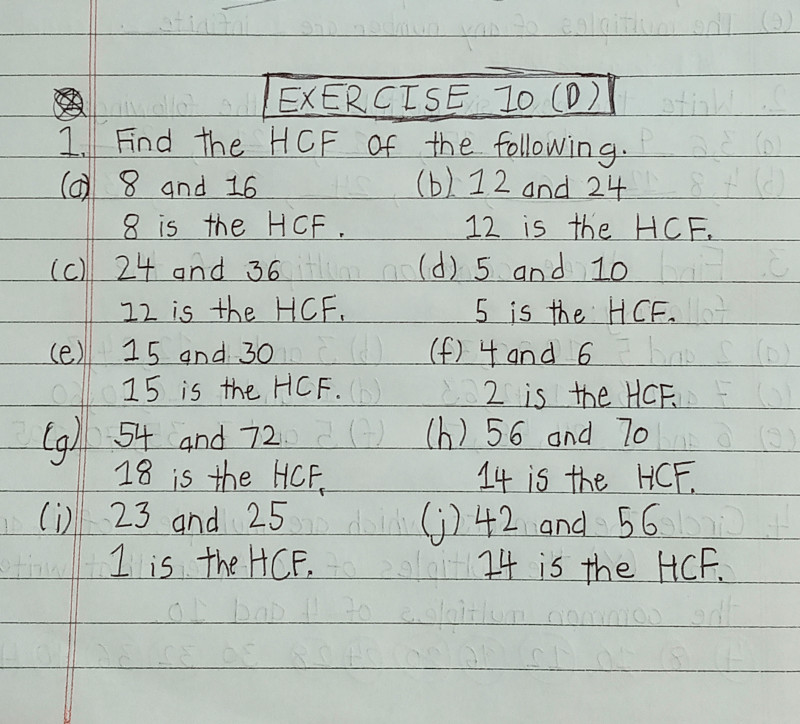 EXERCISE 10 (D)
1. Find the HCF of the following.
(a) 8 and 16 (b) 12 and 24
8 is the HCF. 12 is the HCF.
(c) 24 and 36 (d) 5 and 10
12 is the HCF. 5 is the HCF.
(e) 15 and 30 (f) 4 and 6
15 is the HCF. 2 is the HCF.
(g) 54 and 72 (h) 56 and 70
18 is the HCF. 14 is the HCF.
(i) 23 and 25 (j) 42 and 56
1 is the HCF. 14 is the HCF.